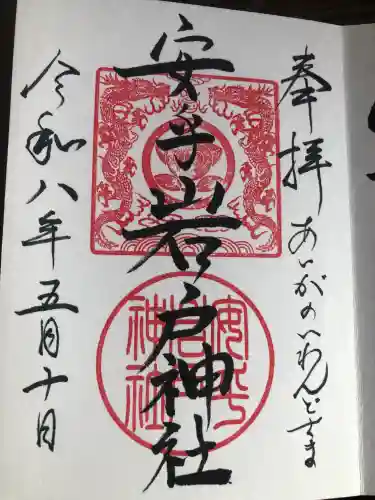 奉拝
あいがのいわんどさま
安乎岩戸神社
安乎
岩戸
神社
令和八年五月十日